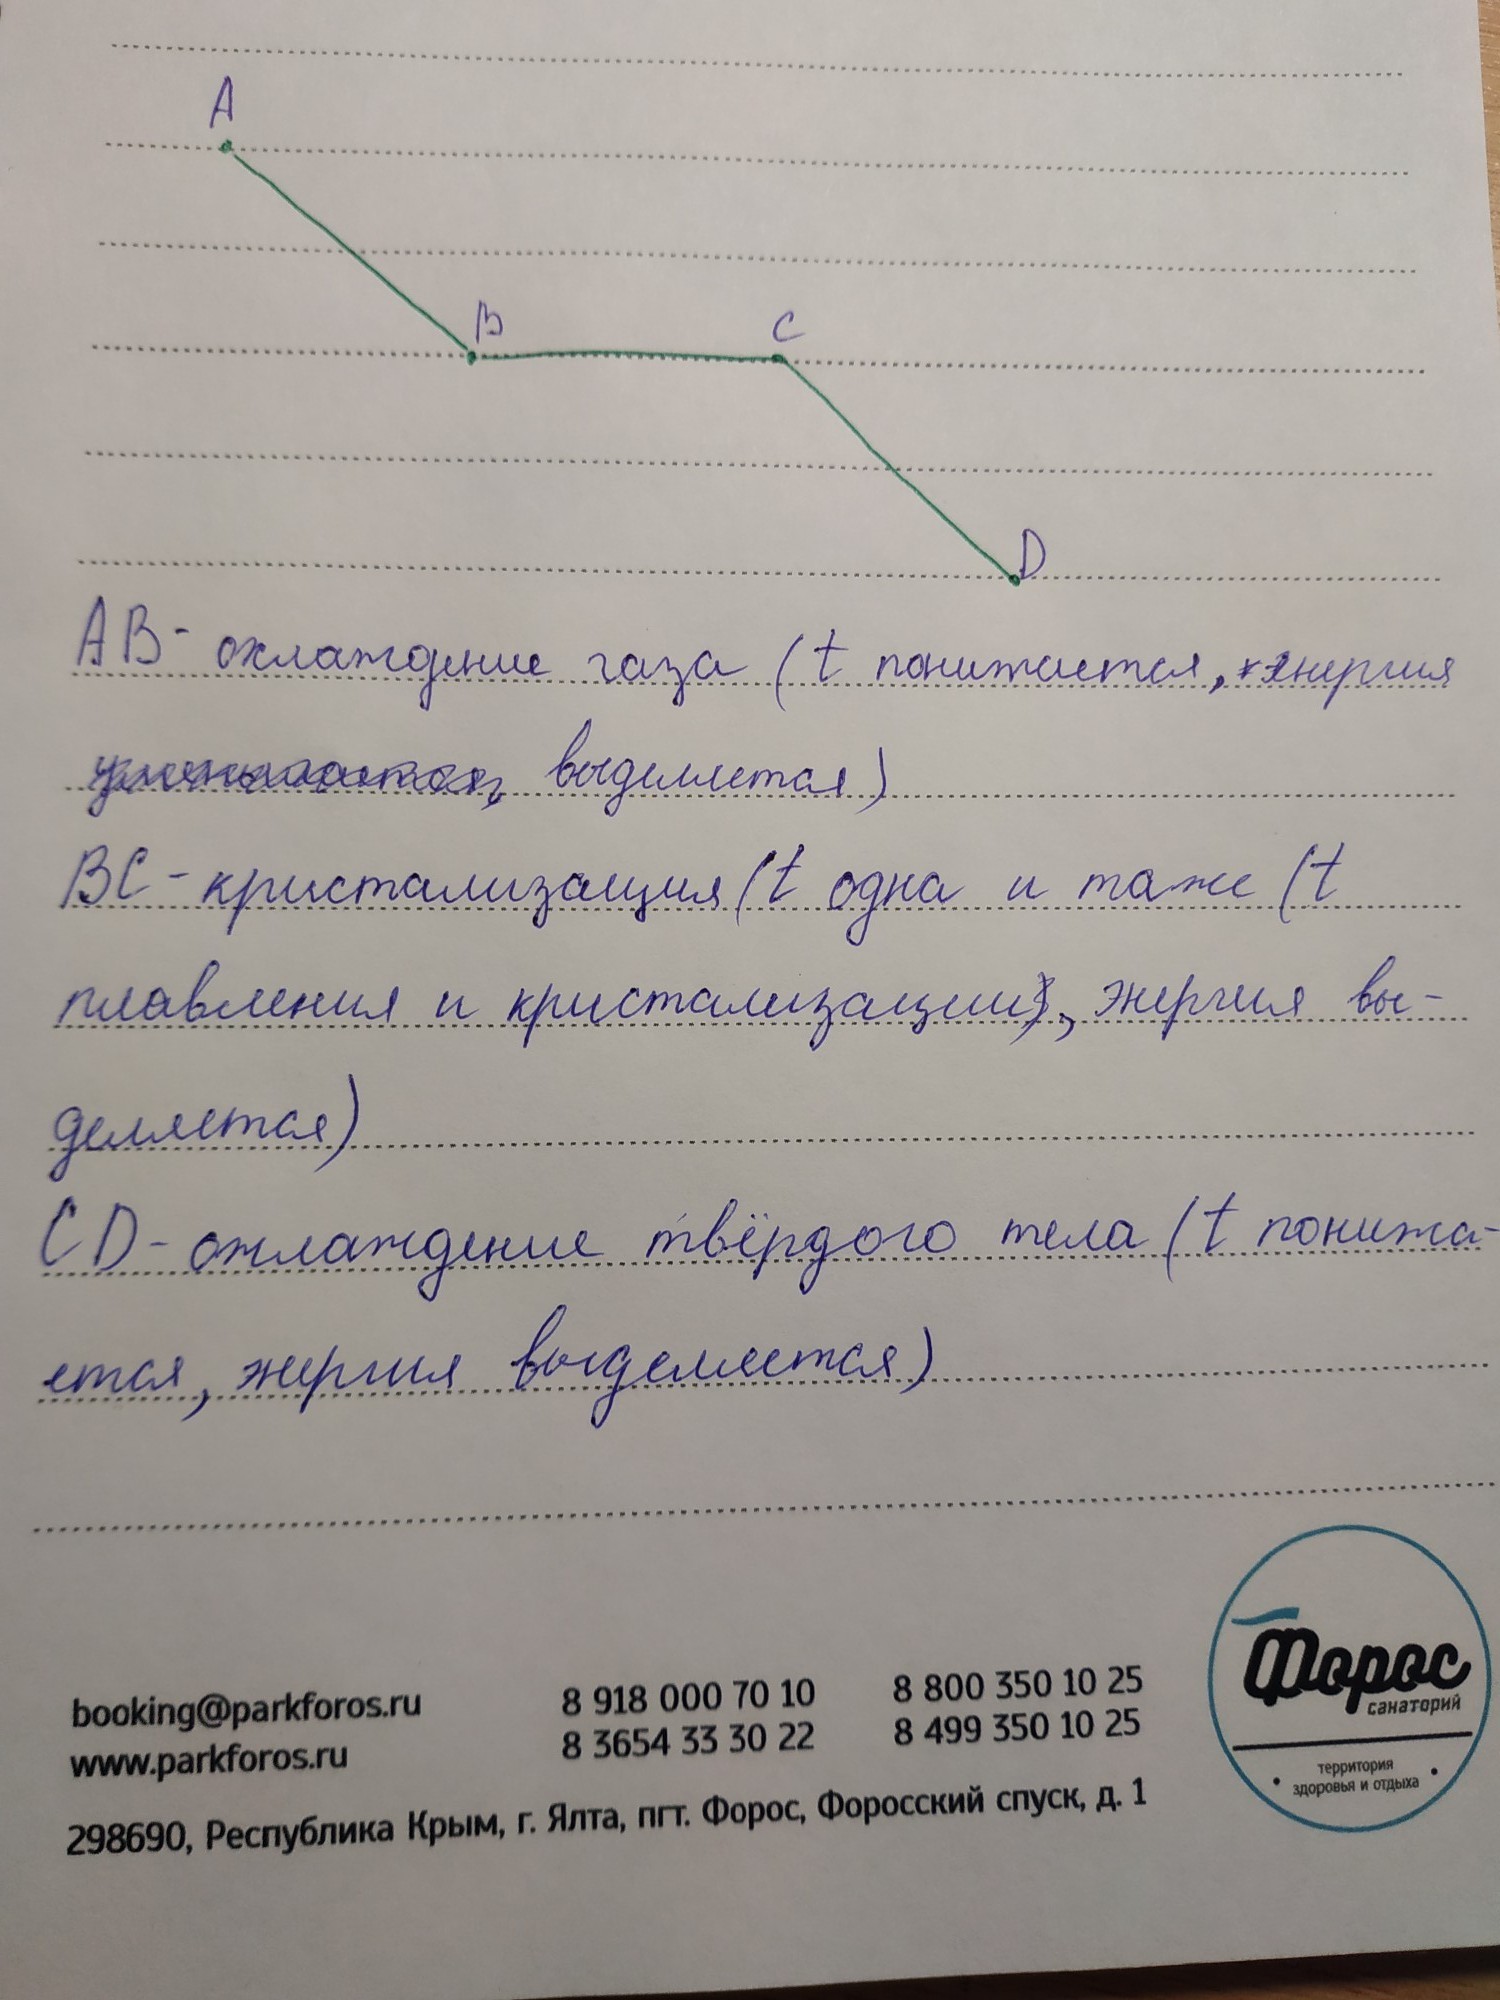 A
B
C
D
AB - охлаждение газа (t понижается, энергия
выделяется)
BC - кристализация (t одна и таже (t
плавления и кристализации), энергия вы-
деляется)
CD - охлаждение твёрдого тела (t понижа-
ется, энергия выделяется)
Форос
санаторий
территория
• здоровья и отдыха •
booking@parkforos.ru 8 918 000 70 10 8 800 350 10 25
www.parkforos.ru 8 3654 33 30 22 8 499 350 10 25
298690, Республика Крым, г. Ялта, пгт. Форос, Форосский спуск, д. 1